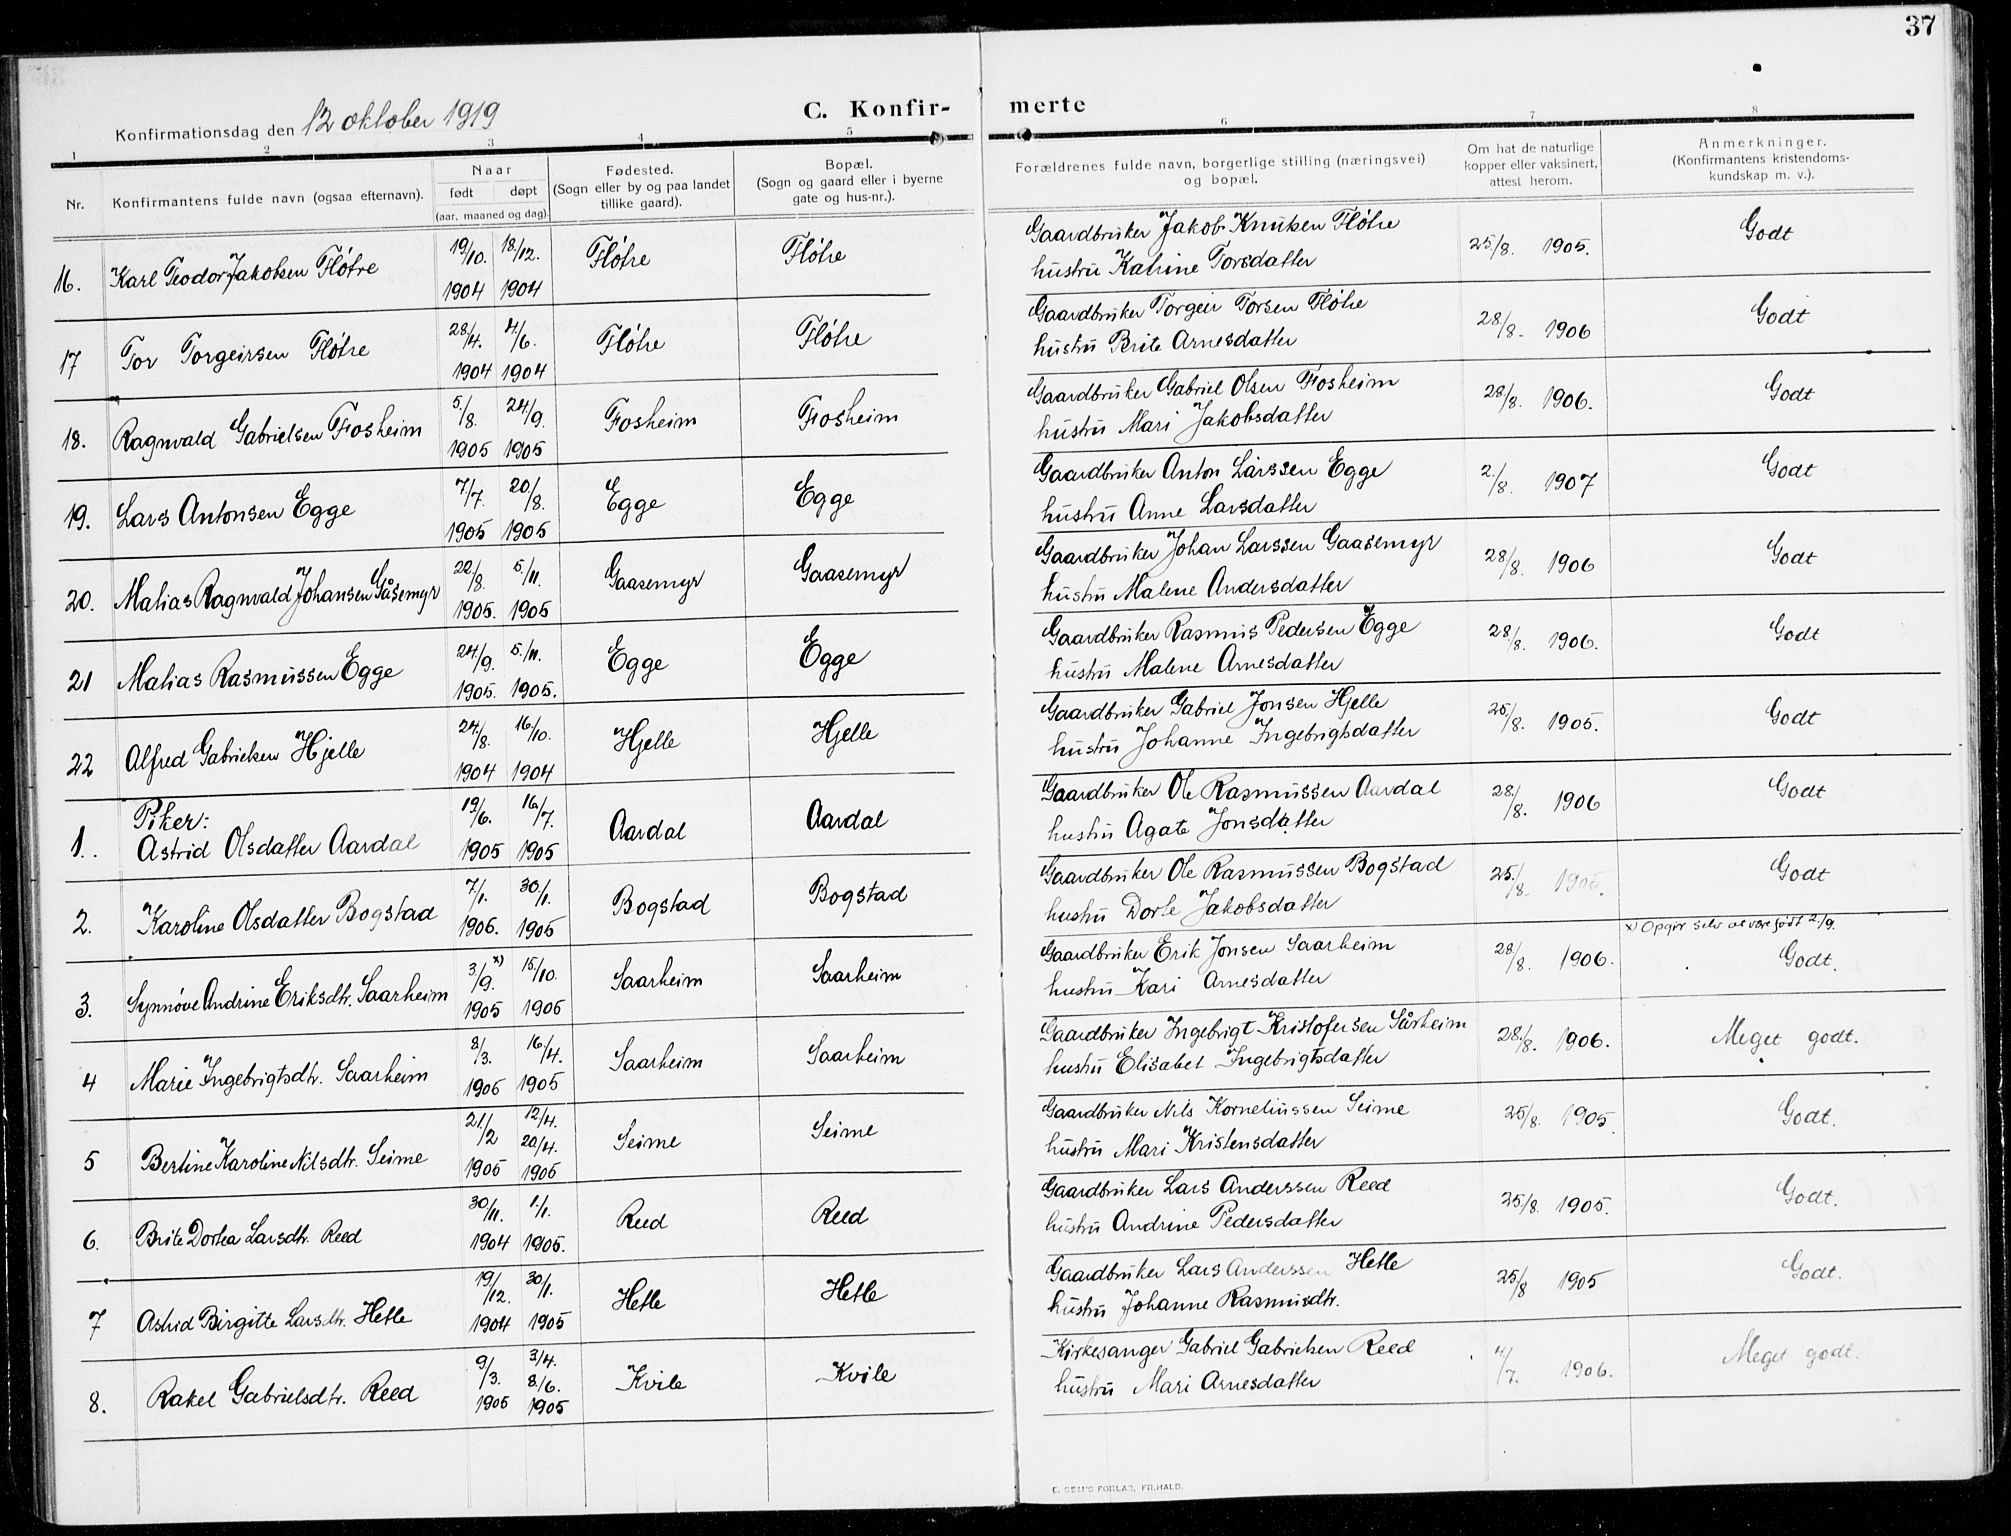 37
Konfirmationsdag den 12 oktober 1919
C. Konfir-merte
1 2 3 4 5 6 7 8
Nr.
Konfirmantens fulde navn (ogsaa efternavn).
Naar
født døpt
(aar, maaned og dag).
Fødested.
(Sogn eller by og paa landet
tillike gaard).
Bopæl.
(Sogn og gaard eller i byerne
gate og hus-nr.).
Forældrenes fulde navn, borgerlige stilling (næringsvei)
og bopæl.
Om hat de naturlige
kopper eller vaksinert,
attest herom.
Anmerkninger.
(Konfirmantens kristendoms-
kundskap m. v.).
16. Karl Teodor Jakobsen Fløtre 19/10. 1904 18/12. 1904 Fløtre Fløtre
Gaardbruker Jakob Knutsen Fløtre
hustru Katrine Torsdatter
25/8. 1905. Godt
17 Tor Torgeirsen Fløtre 28/4. 1904 4/6. 1904 Fløtre Fløtre
Gaardbruker Torgeir Torsen Fløtre
hustru Brite Arnesdatter
28/8. 1906 Godt
18. Ragnvald Gabrielsen Fosheim 5./8. 1905 24/9. 1905 Fosheim Fosheim
Gaardbruker Gabriel Olsen Fosheim
hustru Mari Jakobsdatter
28/8. 1906. Godt
19. Lars Antonsen Egge 7/7. 1905 20/8. 1905 Egge Egge
Gaardbruker Anton Larssen Egge
hustru Anne Larsdatter
2./8. 1907 Godt
20. Matias Ragnvald Johansen Gåsemyr 22/8. 1905. 5/11. 1905 Gaasemyr Gaasemyr
Gaardbruker Johan Larssen Gaasemyr
hustru Malene Andersdatter
28/8. 1906 Godt
21 Matias Rasmussen Egge 24/9. 1905. 5./11. 1905. Egge Egge
Gaardbruker Rasmus Pedersen Egge
hustru Malene Arnesdatter
28/8. 1906. Godt
22 Alfred Gabrielsen Hjelle 24/8. 1904 16/10. 1904 Hjelle Hjelle
Gaardbruker Gabriel Jonsen Hjelle
hustru Johanne Ingebrigtsdatter
25/8. 1905. Godt
Piker:
1. Astrid Olsdatter Aardal 19/6. 1905 16/7. 1905 Aardal Aardal
Gaardbruker Ole Rasmussen Aardal
hustru Agate Jonsdatter
28/8. 1906 Godt
2. Karoline Olsdatter Bogstad 7/1. 1905. 30/1. 1905 Bogstad Bogstad
Gaardbruker Ole Rasmussen Bogstad
hustru Dorte Jakobsdatter
25/8. 1905. Godt
3. Synnøve Andrine Eriksdtr. Saarheim 3/9. x) 1905 15/10. 1905 Saarheim Saarheim
Gaardbruker Erik Jonsen Saarheim
hustru Kari Arnesdatter
28/8. 1906.
x) Opgir selv at være født 2/9.
Godt.
4 Marie Ingebrigtsdtr. Saarheim 8/3. 1905 16/4. 1905 Saarheim Saarheim
Gaardbruker Ingebrigt Kristofersen Sårheim
hustru Elisabet Ingebrigtsdatter
28/8. 1906. Meget godt.
5 Bertine Karoline Nilsdtr. Seime 21/2 1905 12/4. 20/4. 1905 Seime Seime
Gaardbruker Nils Korneliussen Seime
hustru Mari Kristensdatter
25/8. 1905. Godt.
6. Brite Dortea Larsdtr. Reed 30/11. 1904 1/1. 1905. Reed Reed
Gaardbruker Lars Anderssen Reed
hustru Andrine Pedersdatter
25/8. 1905. Godt.
7 Astrid Birgitte Larsdtr. Hetle 19/12. 1904 30/1. 1905 Hetle Hetle
Gaardbruker Lars Anderssen Hetle
hustru Johanne Rasmusdtr.
25/8 1905 Godt.
8. Rakel Gabrielsdtr. Reed 9/3. 1905 3/4. 8/6. 1905 Kvile Kvile
Kirkesanger Gabriel Gabrielsen Reed
hustru Mari Arnesdatter
4/7. 1906. Meget godt.
E. SEM'S FORLAG, FR.HALD.